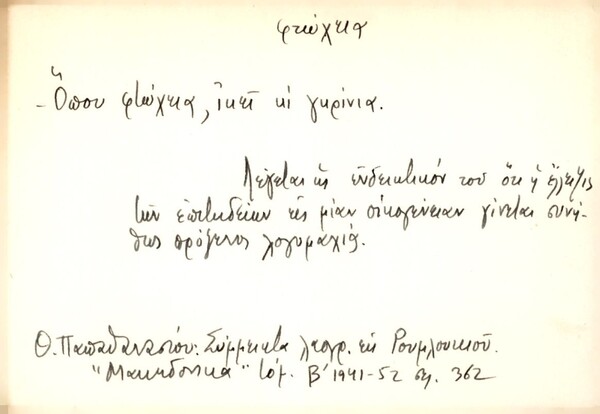 φτώχεια
- Ὅπου φτώχεια, ἰκεῖ κὶ γκρίνια.
Λέγεται ὡς ἐνδεικτικόν του ὅτι ἡ ἔλλειψις
τῶν ἐπιτηδείων εἰς μίαν οἰκογένειαν γίνεται συνή-
θως πρόξενος λογομαχίας.
Θ. Παπαθανασίου: Σύμμεικτα λαογρ. ἐκ Ρουμλουκιοῦ.
"Μακεδονικά" τόμ. Β' 1941-52 σελ. 362